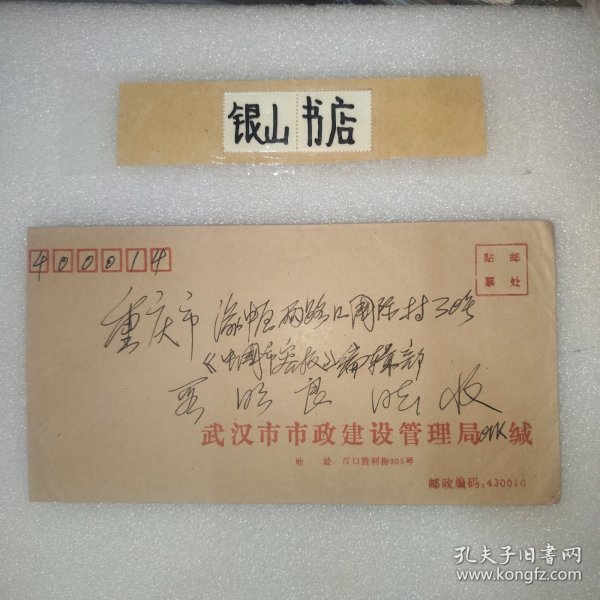 银山书店
400014
贴邮
票处
重庆市渝中区两路口国际村30号
《中国市容报》编辑部
王明良 收
武汉市市政建设管理局 缄
地 址：汉口胜利街305号
邮政编码：430010
孔夫子旧书网
www.kongfz.com